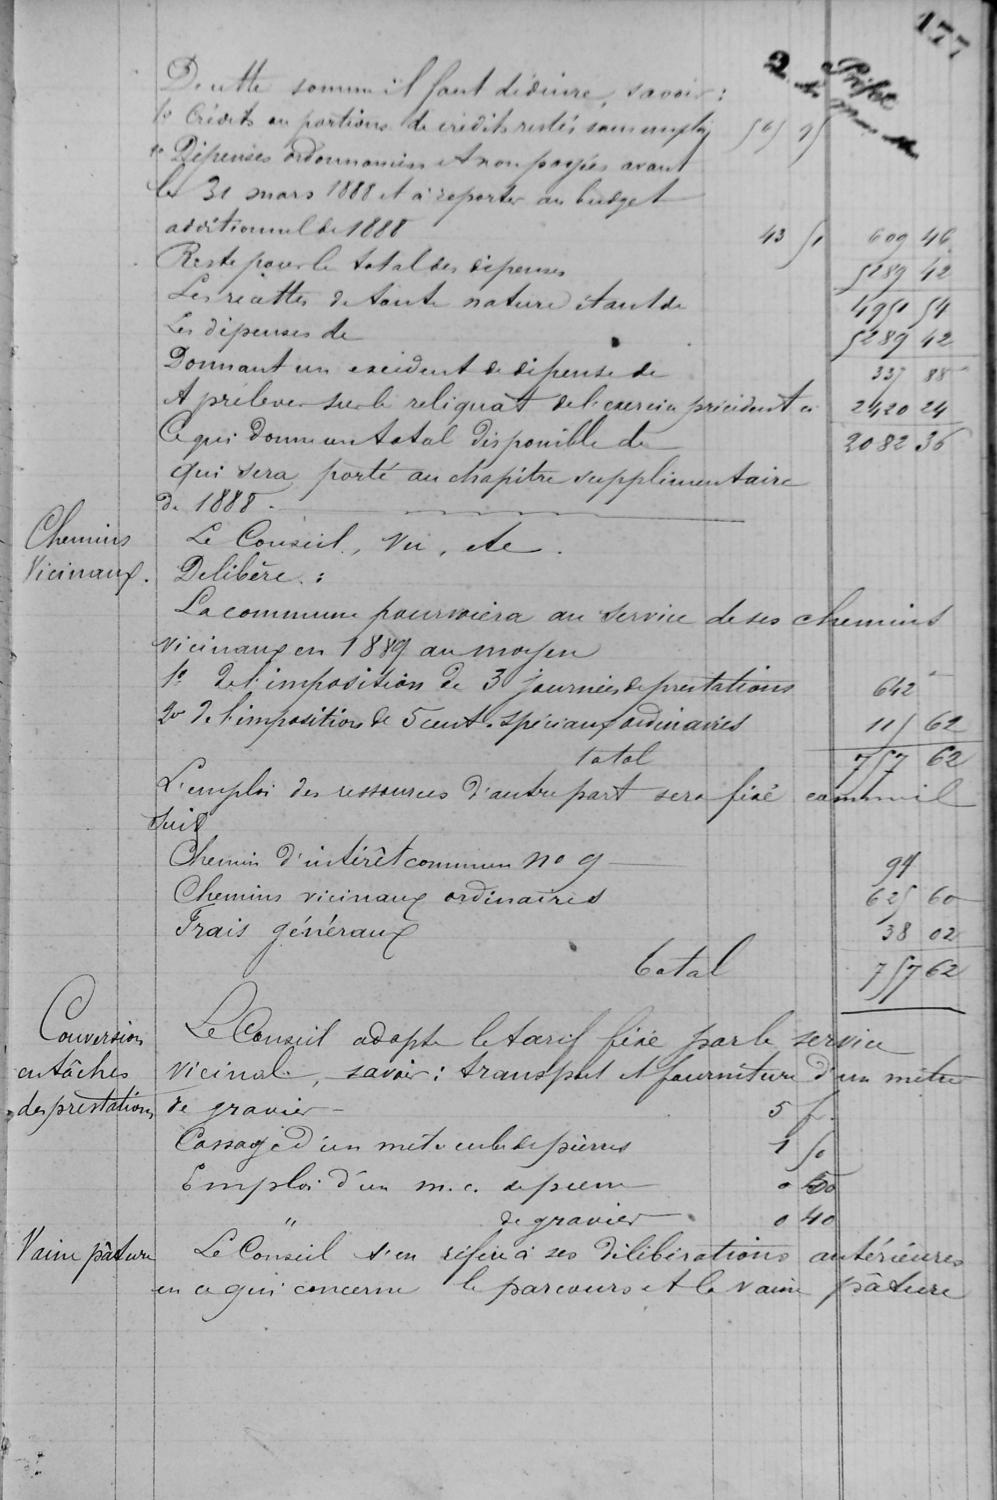 177
Préfet
De cette somme il faut déduire, savoir :
1o Crédits ou portions de crédits restés sans emploi 565 95
2o Dépenses ordonnancées et non payées avant
le 31 mars 1888 et à reporter au budget
additionnel de 1888 43 51 609 46
Reste pour le total des dépenses 5289 42
Les recettes de toute nature étant de 4951 54
Les dépenses de 5289 42
Donnant un excédent de dépense de 337 88
A prélever sur le reliquat de l'exercice précédent ci 2420 24
Ce qui donne un total disponible de 2082 36
qui sera porté au chapitre supplémentaire
de 1888.
Chemins Vicinaux.
Le Conseil, Vu, etc.
Délibère :
La commune pourvoiera au service de ses chemins
vicinaux en 1889 au moyen
1o De l'imposition de 3 journées de prestations 642
2o De l'imposition de 5 cent. spéciaux ordinaires 115 62
total 757 62
L'emploi des ressources d'autre part sera fixé comme il
suit
Chemin d'intérêt commun no 9 94
Chemins vicinaux ordinaires 625 60
Frais généraux 38 02
total 757 62
Conversion
en tâches
des prestations
Le Conseil adopte le tarif fixé par le service
vicinal, savoir : transport et fourniture d'un mètre
de gravier 5 f.
Cassage d'un mètre cube de pierres 1 50
Emploi d'un m. c. de pierre 0 50
" de gravier 0 40
Vaine pâture
Le Conseil s'en réfère à ses délibérations antérieures
en ce qui concerne le parcours et la vaine pâture